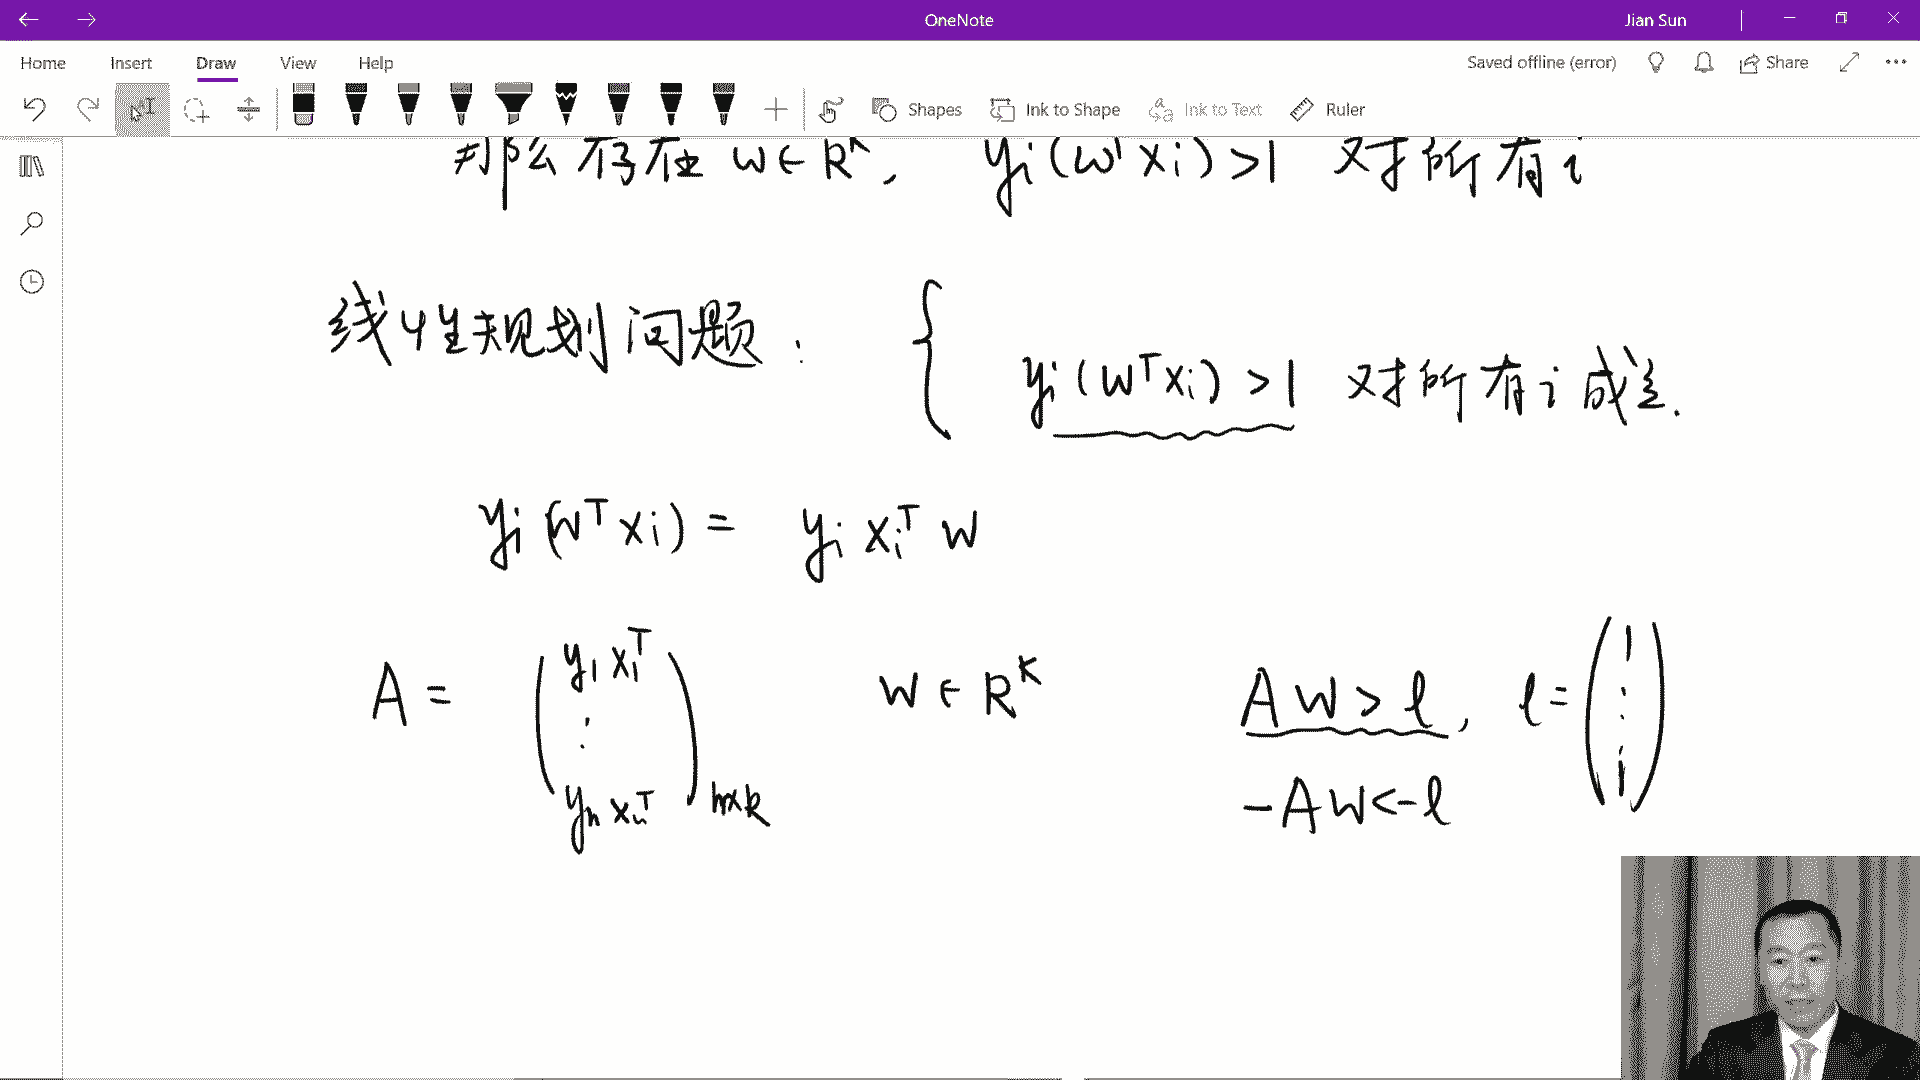 OneNote
Jian Sun
Home Insert Draw View Help
Saved offline (error)
Share
Shapes
Ink to Shape
Ink to Text
Ruler
那么存在 w ∈ R^k, yi(w^T xi) > 1 对所有 i
线性规划问题: { yi(w^T xi) > 1 对所有 i 成立.
yi(w^T xi) = yi xi^T w
A = ( y1 x1^T ⋮ yn xn^T ) n×k w ∈ R^k A w > l, l = ( 1 ⋮ 1 )
-A w < -l